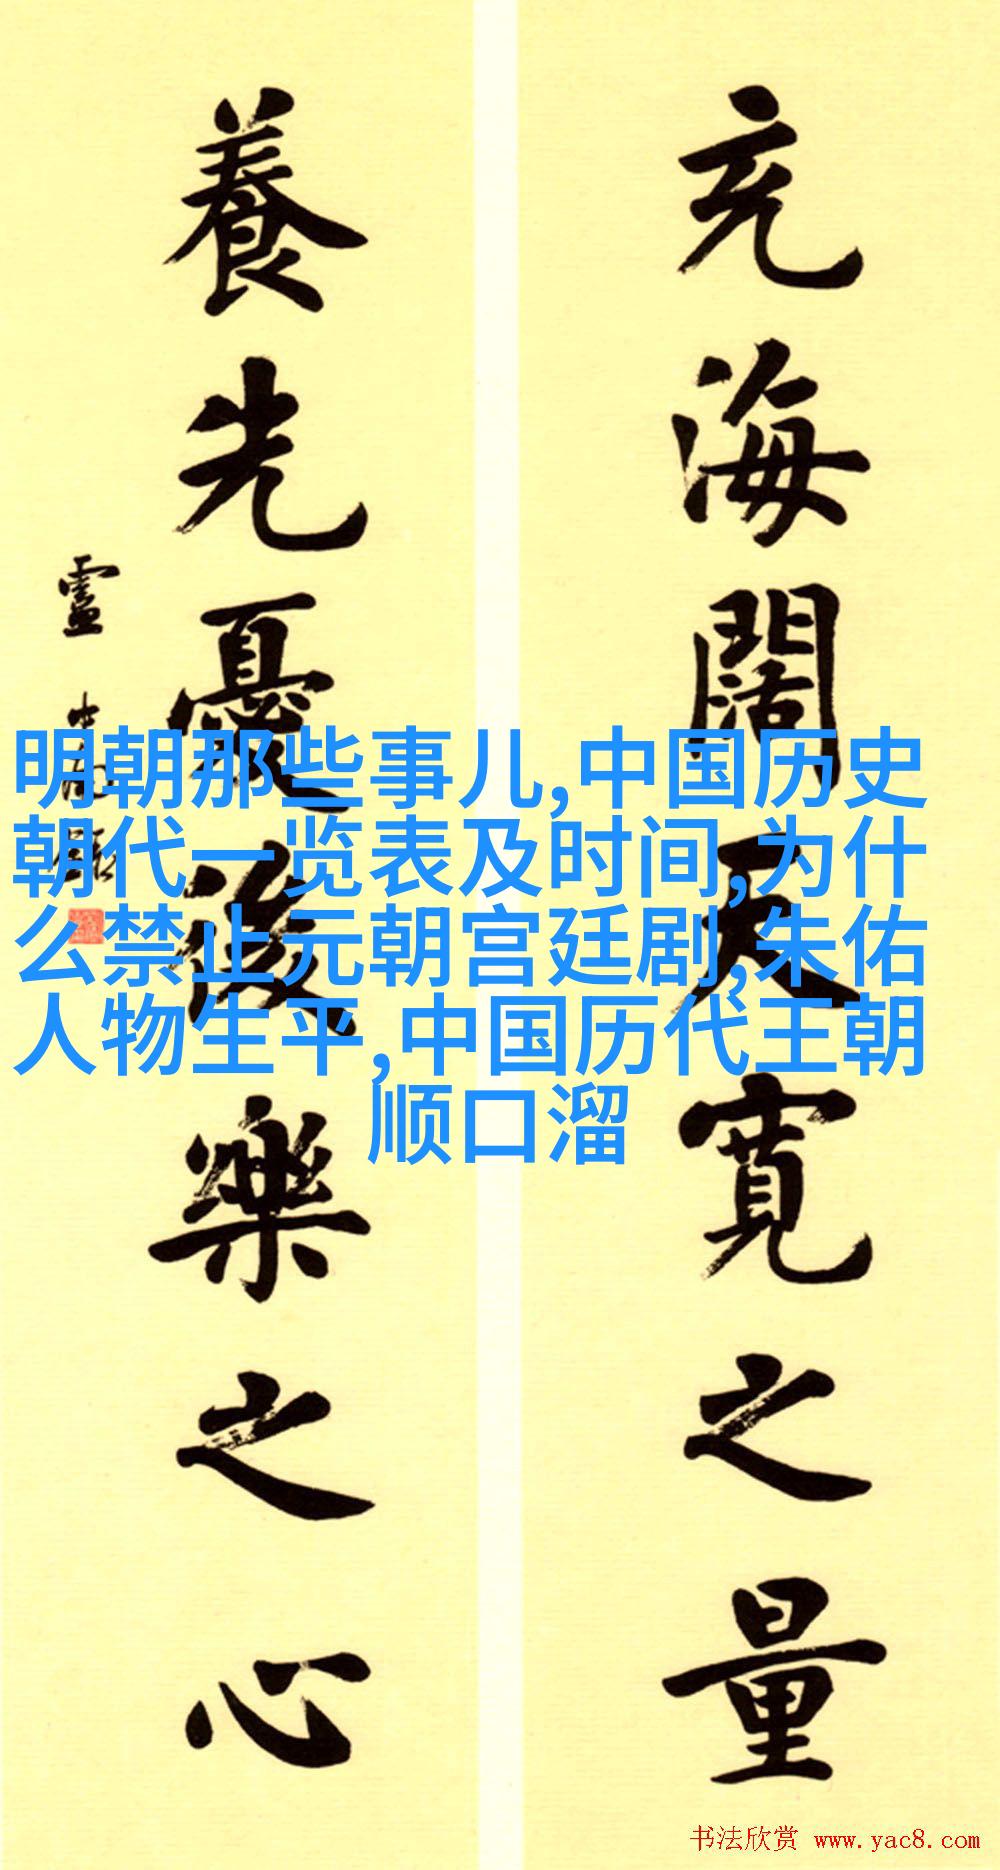 充海闊天寬之量
養先憂後樂之心
明朝那些事儿,中国历史
朝代一览表及时间,为什
么禁止元朝宫廷剧,朱佑
人物生平,中国历代王朝
顺口溜
书法欣赏 www.yac8.com